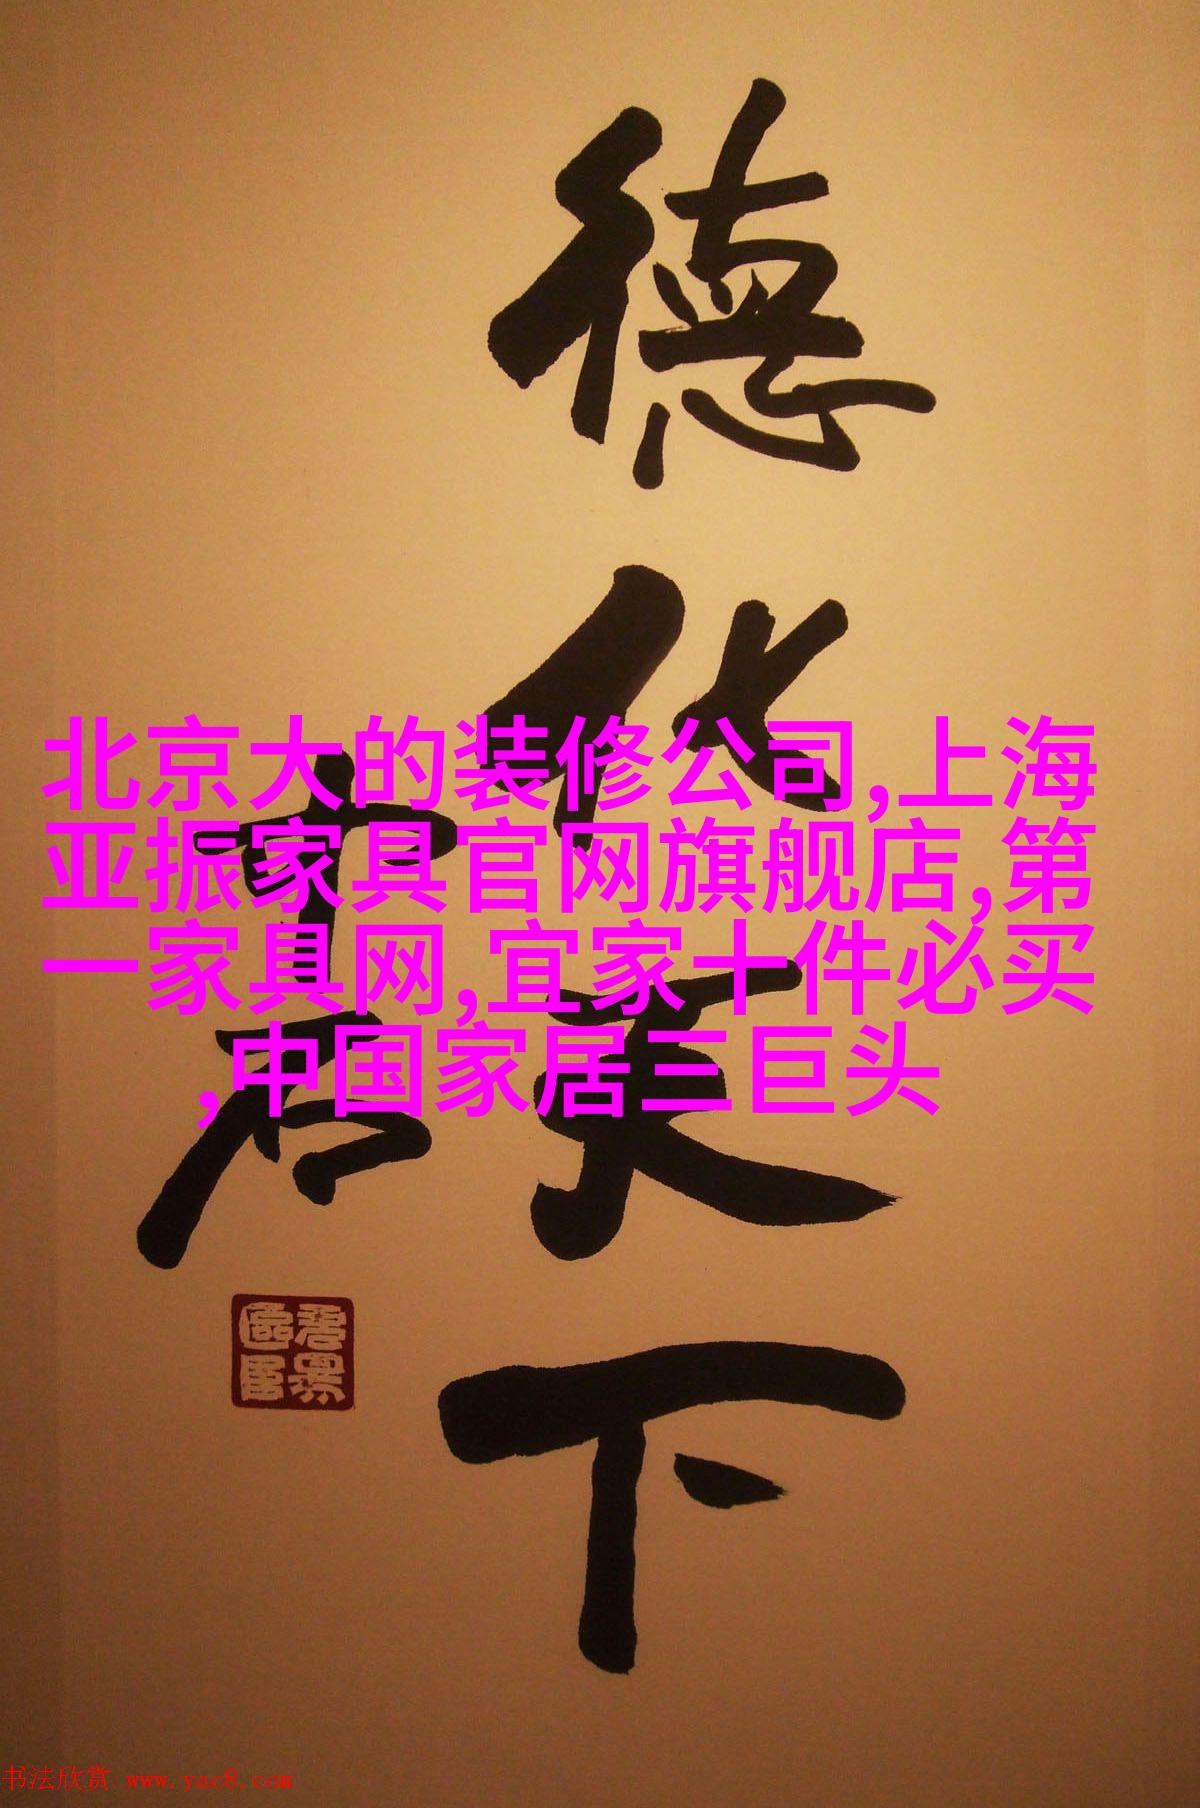 德化天下
十石
北京大的装修公司,上海
亚振家具官网旗舰店,第
一家具网,宜家十件必买
,中国家居三巨头
书法欣赏 www.yac8.com